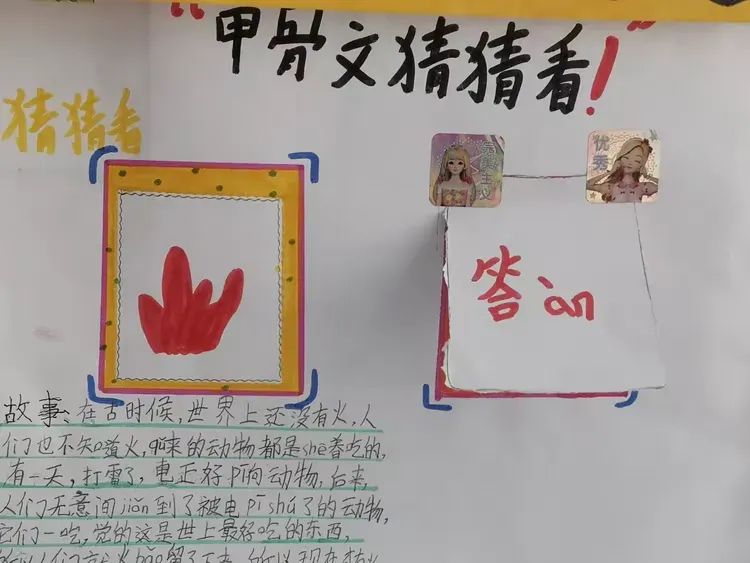 “甲骨文猜猜看！”
猜猜看
优秀
答àn
故事：在古时候，世界上还没有火，人
们也不知道火，的动物都是shē着吃的，
有一天，打雷了，电正好pī向动物，后来，
人们无意间jiǎn到了被电pī shú了的动物，
它们一吃，觉的这是世上最好吃的东西，
所以人们就火bǎo留了下来，所以现在